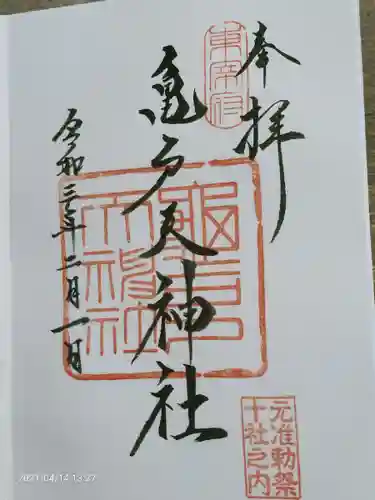 奉拝
東宰府
亀戸天神社
亀戸天神社
令和三年二月一日
元准勅祭
十社之内
2021/04/14 13:27